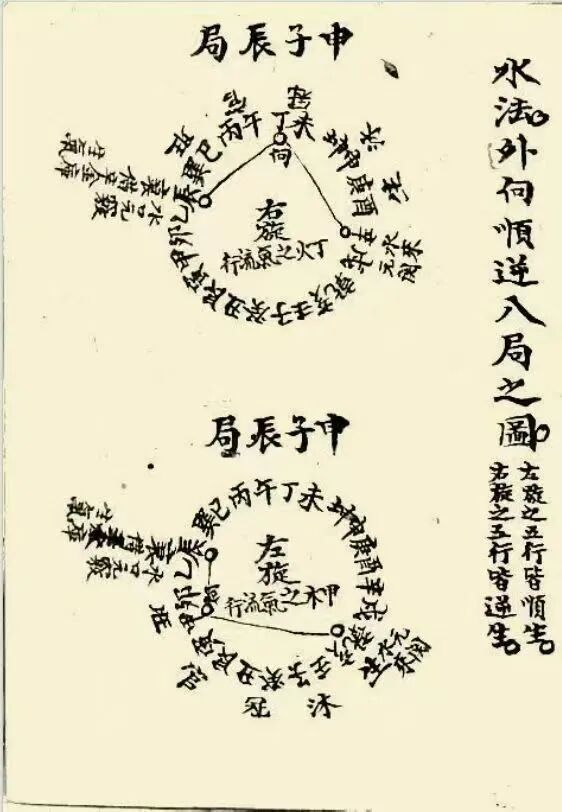 水法。外向順逆八局之圖。
左旋之五行皆順生。
右旋之五行皆逆生。
申子辰局
巽巳丙午丁未坤申庚酉辛戌乾亥壬子癸丑艮寅甲卯乙辰
向
右旋
丁火之氣流行
旺
冠
沐
生
水口元竅
生氣
申子辰局
巽巳丙午丁未坤申庚酉辛戌乾亥壬子癸丑艮寅甲卯乙辰
向
左旋
甲木之氣流行
水口元竅
生氣
旺
冠
沐
生